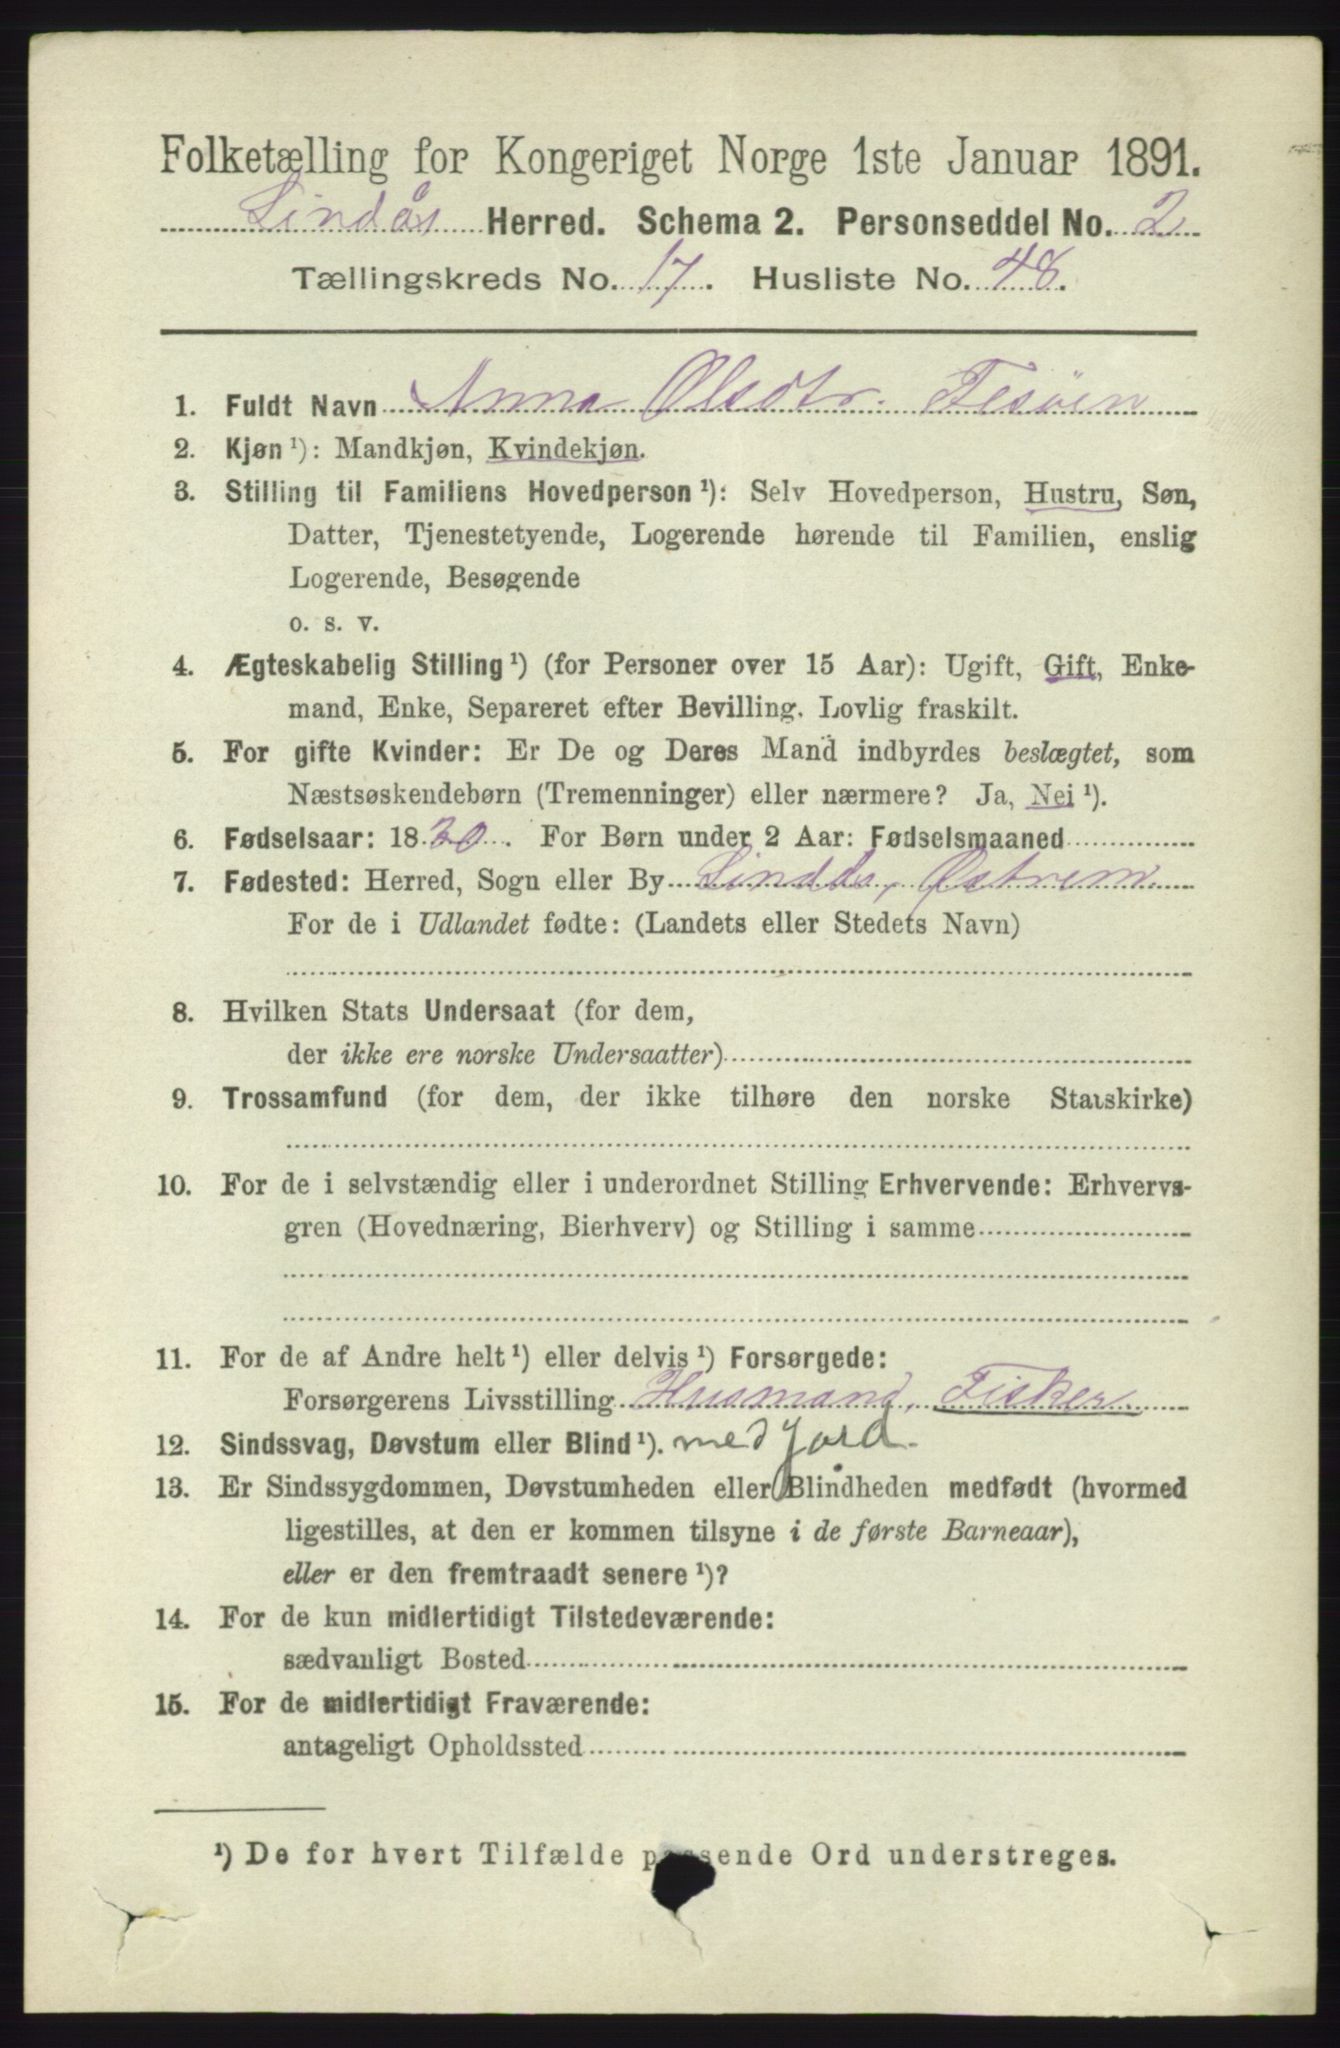 Folketælling for Kongeriget Norge 1ste Januar 1891.
Lindås Herred. Schema 2. Personseddel No. 2
Tællingskreds No. 17. Husliste No. 48.
1. Fuldt Navn Anna Olsdtr. Fesöen
2. Kjøn ¹): Mandkjøn, Kvindekjøn.
3. Stilling til Familiens Hovedperson ¹): Selv Hovedperson, Hustru, Søn,
Datter, Tjenestetyende, Logerende hørende til Familien, enslig
Logerende, Besøgende
o. s. v.
4. Ægteskabelig Stilling ¹) (for Personer over 15 Aar): Ugift, Gift, Enke-
mand, Enke, Separeret efter Bevilling. Lovlig fraskilt.
5. For gifte Kvinder: Er De og Deres Mand indbyrdes beslægtet, som
Næstsøskendebørn (Tremenninger) eller nærmere? Ja, Nei ¹).
6. Fødselsaar: 1820. For Børn under 2 Aar: Fødselsmaaned
7. Fødested: Herred, Sogn eller By Lindås, Østrem
For de i Udlandet fødte: (Landets eller Stedets Navn)
8. Hvilken Stats Undersaat (for dem,
der ikke ere norske Undersaatter)
9. Trossamfund (for dem, der ikke tilhøre den norske Statskirke)
10. For de i selvstændig eller i underordnet Stilling Erhvervende: Erhvervs-
gren (Hovednæring, Bierhverv) og Stilling i samme
11. For de af Andre helt ¹) eller delvis ¹) Forsørgede:
Forsørgerens Livsstilling Husmand, Fisker
12. Sindssvag, Døvstum eller Blind ¹). med jord.
13. Er Sindssygdommen, Døvstumheden eller Blindheden medfødt (hvormed
ligestilles, at den er kommen tilsyne i de første Barneaar),
eller er den fremtraadt senere ¹)?
14. For de kun midlertidigt Tilstedeværende:
sædvanligt Bosted
15. For de midlertidigt Fraværende:
antageligt Opholdssted
¹) De for hvert Tilfælde passende Ord understreges.